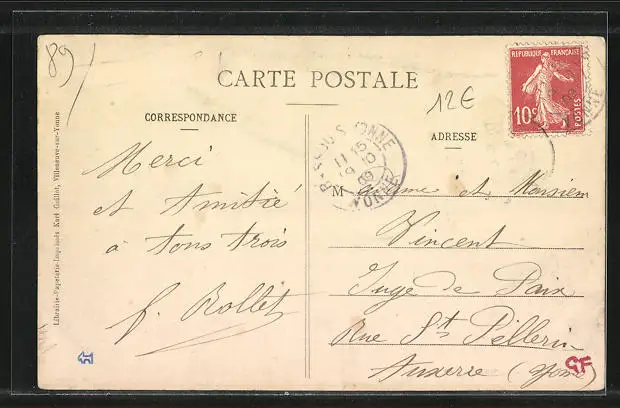 89
CARTE POSTALE
12€
RÉPUBLIQUE FRANÇAISE
10c
POSTES
CORRESPONDANCE
ADRESSE
Merci
et Amitié
à tous trois
f. Rollet
YONNE
11 15
9 - 10
09
YONNE
Madame et Monsieur
Vincent
Juge de Paix
Rue St Pellerin
Auxerre (Yonne)
Librairie-Papeterie-Imprimés Karl Guillot, Villeneuve-sur-Yonne
GF